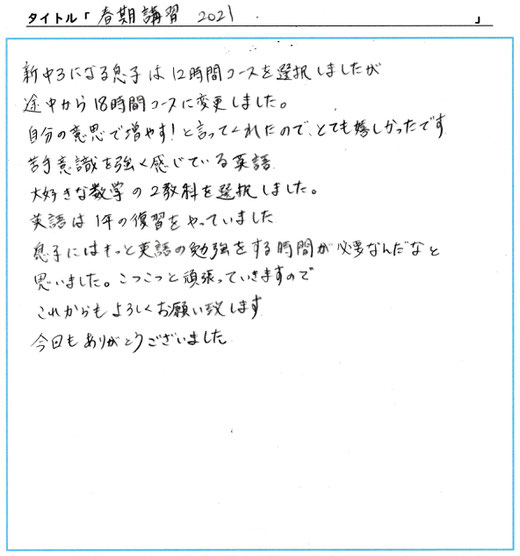 タイトル「春期講習 2021 」
新中3になる息子は12時間コースを選択しましたが
途中から18時間コースに変更しました。
自分の意思で増やす!と言ってくれたので、とても嬉しかったです
苦手意識を強く感じている英語
大好きな数学の2教科を選択しました。
英語は1年の復習をやっていました
息子にはもっと英語の勉強をする時間が必要なんだなと
思いました。こつこつと頑張っていきますので
これからもよろしくお願い致します
今日もありがとうございました